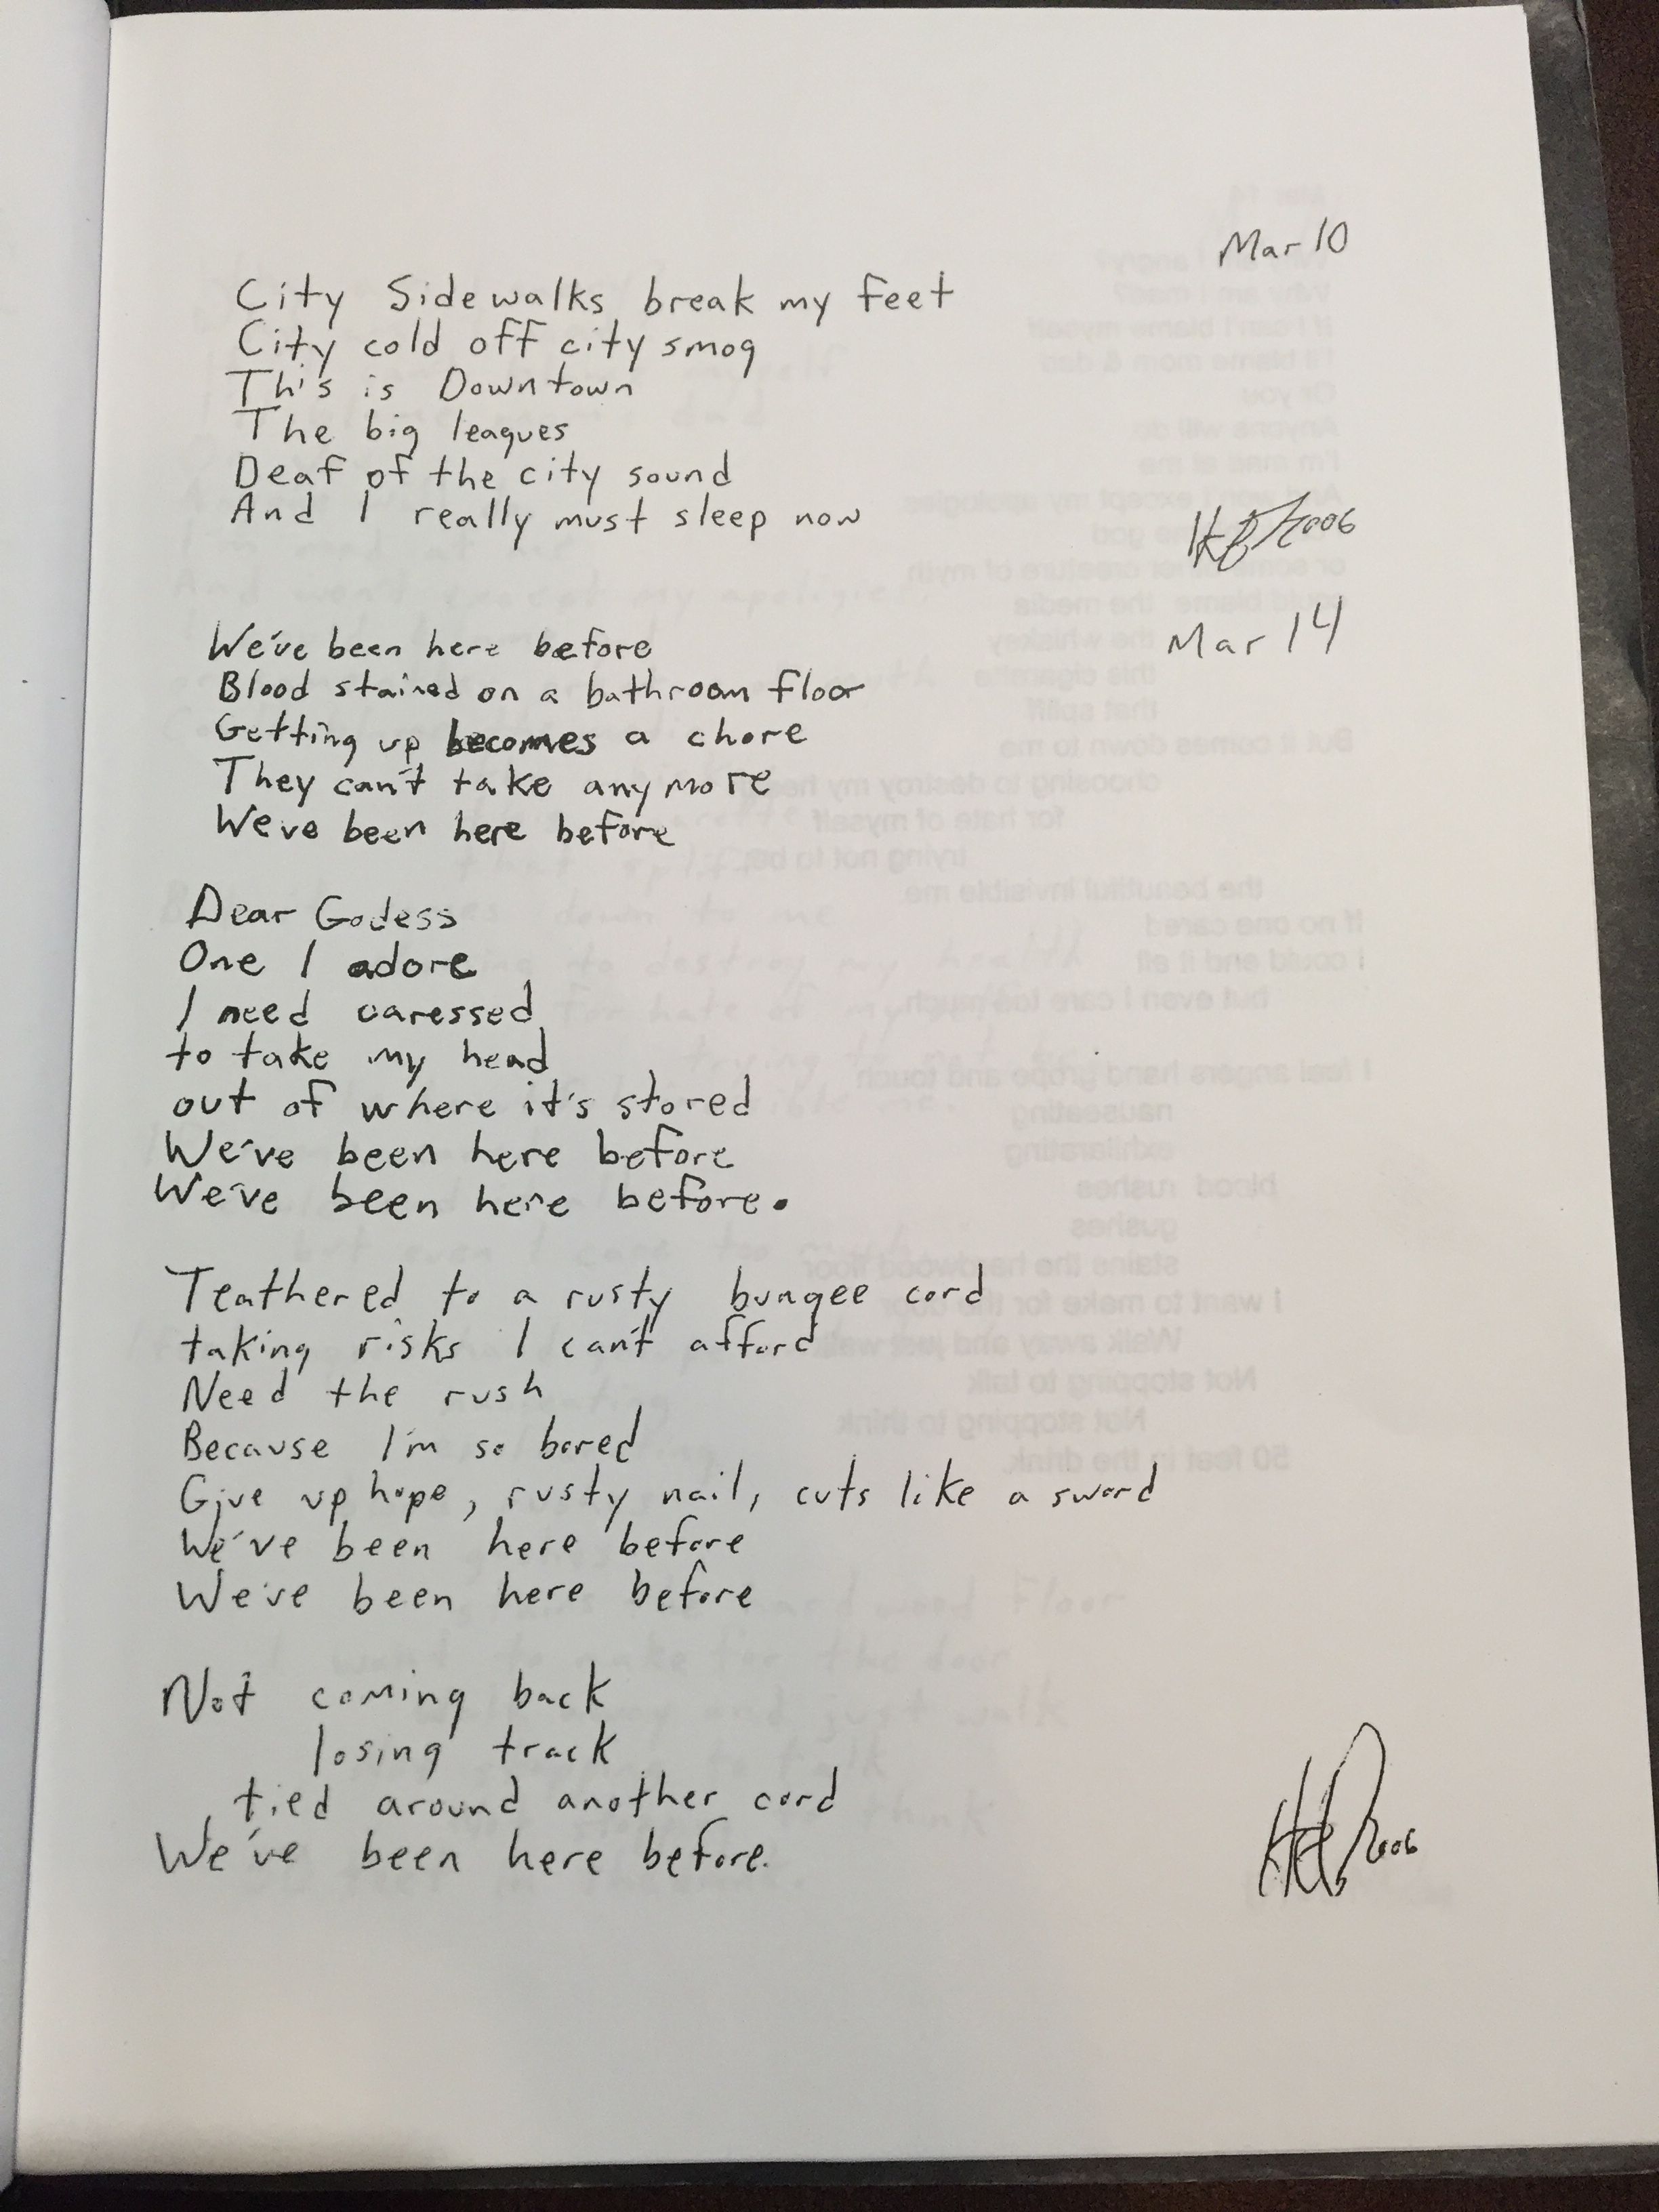 Mar 10
City Sidewalks break my feet
City cold off city smog
This is Downtown
The big leagues
Deaf of the city sound
And I really must sleep now
2006
Mar 14
We've been here before
Blood stained on a bathroom floor
Getting up becomes a chore
They can't take anymore
We've been here before
Dear Godess
One I adore
I need caressed
to take my head
out of where it's stored
We've been here before
We've been here before.
Teathered to a rusty bungee cord
taking risks I can't afford
Need the rush
Because I'm so bored
Give up hope, rusty nail, cuts like a sword
We've been here before
We've been here before
Not coming back
losing track
tied around another cord
We've been here before.
2006